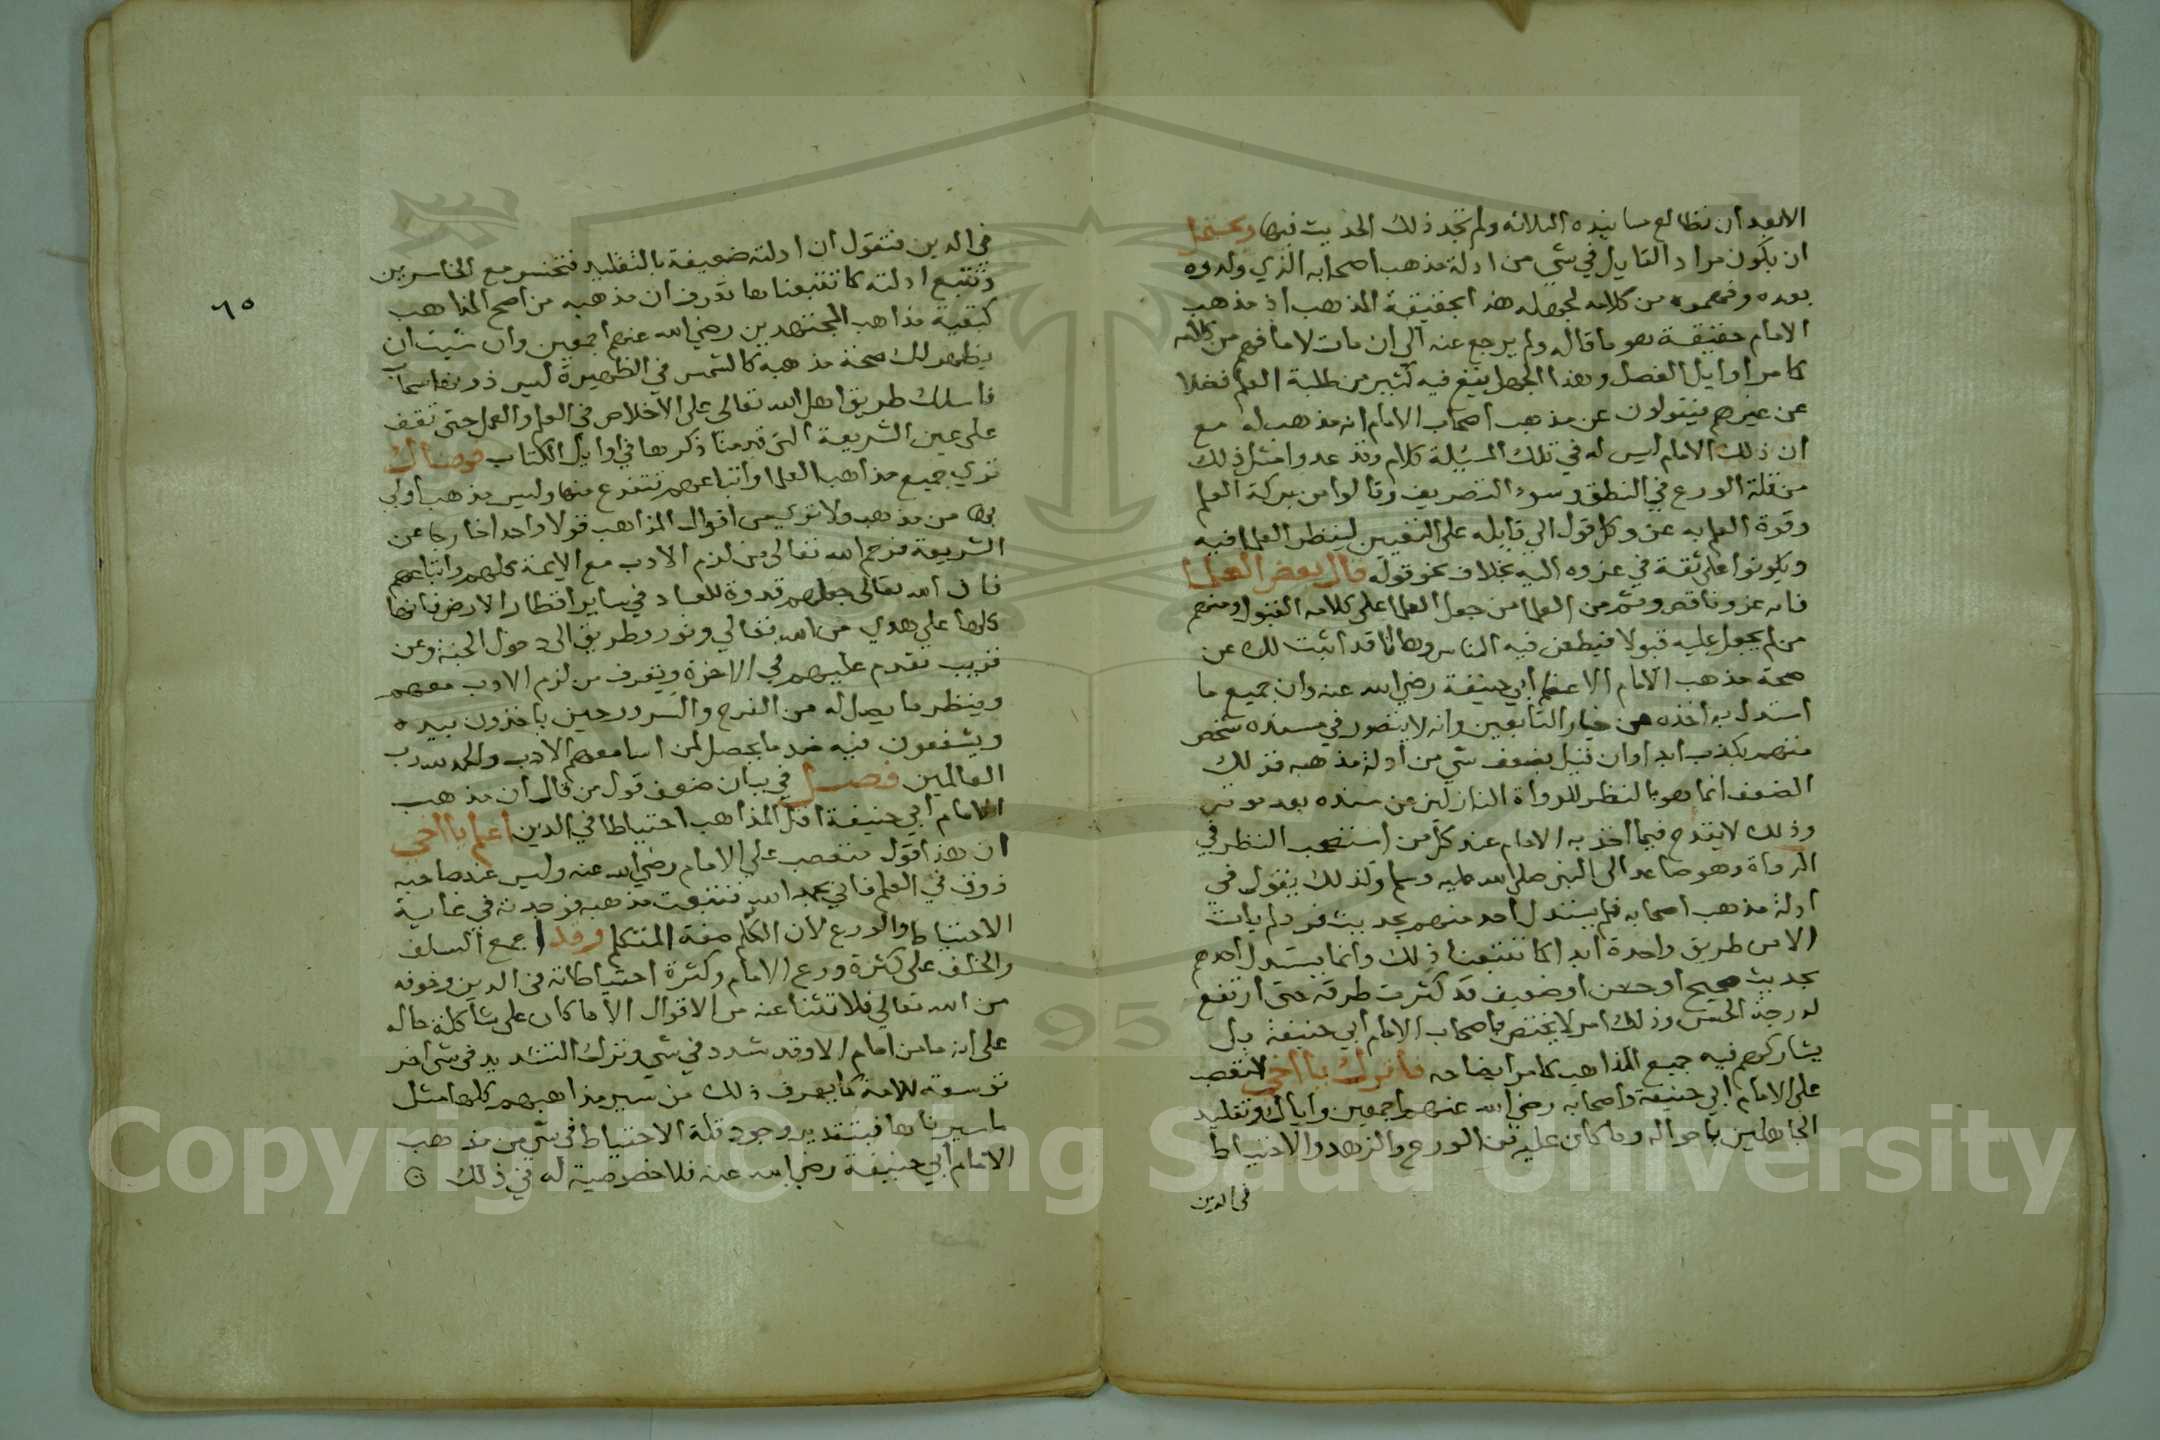 الا بعد ان تطالع مسانيده الثلاثة ولم تجد ذلك الحديث فيها ويحتمل
ان يكون مراد القايل في شي من ادلة مذهب اصحابه الذي ولدوه
بعده وفهموه من كلامه لجهله هذا بحقيقة المذهب اذ مذهب
الامام حقيقة هو ما قاله ولم يرجع عنه الى ان مات لا ما فهم من كلامه
كما مر اوايل الفصل وهذا الجهل يقع فيه كثير من طلبة العلم فضلا
عن غيرهم فيقولون عن مذهب اصحاب الامام انه مذهب له مع
ان ذلك الامام ليس له في تلك المسئلة كلام وقد عدوا مثل ذلك
من قلة الورع في النطق وسوء التصريف وقالوا من بركة العلم
وقوة العلم به عزو كل قول الى قايله على التعيين لينظر العلما فيه
ويكونوا على ثقة في عزوه اليه بخلاف نحو قوله قال بعض العلما
فانه عزو ناقص وثم من العلما من جعل العلما على كلامه القبول ومنهم
من لم يجعل عليه قبولا فيطعن فيه الناس وها انا قد اثبت لك عن
صحة مذهب الامام الاعظم ابي حنيفة رضي الله عنه وان جميع ما
استدل به اخذه من خيار التابعين وانه لا يتصور في مسنده شخص
متهم بكذب ابدا وان قيل بضعف شي من ادلة مذهبه فذلك
الضعف انما هو بالنظر للرواة النازلين عن سنده بعد موته
وذلك لا يقدح فيما اخذ به الامام عند كل من استصحب النظر في
الرواة وهو صاعد الى النبي صلى الله عليه وسلم وكذلك يقول في
ادلة مذهب اصحابه فلم يستدل احد منهم بحديث فرد لم يات
الا من طريق واحدة ابدا كما تتبعنا ذلك وانما يستدل احدهم
بحديث صحيح او حسن او ضعيف قد كثرت طرقه حتى ارتفع
لدرجة الحسن وذلك امر لا يختص باصحاب الامام ابي حنيفة بل
يشاركهم فيه جميع المذاهب كما مر ايضاحه فاترك يا اخي التعصب
على الامام ابي حنيفة واصحابه رضي الله عنهم اجمعين واياك وتقليد
الجاهلين باحواله وما كان عليه من الورع والزهد والاحتياط
في الدين
٦٥
في الدين فتقول ان ادلته ضعيفة بالتقليد فتخسر مع الخاسرين
وتتبع ادلته كما تتبعناها تعرف ان مذهبه من اصح المذاهب
كبقية مذاهب المجتهدين رضي الله عنهم اجمعين وان شيت ان
يظهر لك صحة مذهبه كالشمس في الظهيرة ليس دونها سحاب
فاسلك طريق اهل الله تعالى على الاخلاص في العلم والعمل حتى تقف
على عين الشريعة التي قدمنا ذكرها في اوايل الكتاب فهناك
ترى جميع مذاهب العلما واتباعهم تتفرع منها وليس مذهب اولى
بها من مذهب ولا ترى من اقوال المذاهب قولا واحدا خارجا عن
الشريعة فرحم الله تعالى من لزم الادب مع الايمة كلهم واتباعهم
فان الله تعالى جعلهم قدوة للعباد في ساير اقطار الارض فانها
كلها على هدي من الله تعالى ونور وطريق الى دخول الجنة وعن
قريب تقدم عليهم في الاخرة وتعرف من لزم الادب معهم
وينظر ما يحصل له من الفرح والسرور حين ياخذون بيده
ويشفعون فيه ضد ما يحصل لمن اسا معهم الادب والحمد لله رب
العالمين فصل في بيان ضعف قول من قال ان مذهب
الامام ابي حنيفة اقل المذاهب احتياطا في الدين اعلم يا اخي
ان هذا قول متعصب على الامام رضي الله عنه وليس عند صاحبه
ذوق في العلم فاني بحمد الله تتبعت مذهبه فوجدته في غاية
الاحتياط والورع لان الكلام صفة المتكلم وقد اجمع السلف
والخلف على كثرة ورع الامام وكثرة احتياطاته في الدين وخوفه
من الله تعالى فلا تنشا عنه من الاقوال الا ما كان على شاكلة حاله
على انه ما من امام الا وقد شدد في شي وترك التشديد في شي اخر
توسعة للامة كما يعرف ذلك من سبر مذاهبهم كلها مثل
ما سبرناها فبتقدير وجود قلة الاحتياط في شي من مذهب
الامام ابي حنيفة رضي الله عنه فلا خصوصية له في ذلك
Copyright © King Saud University